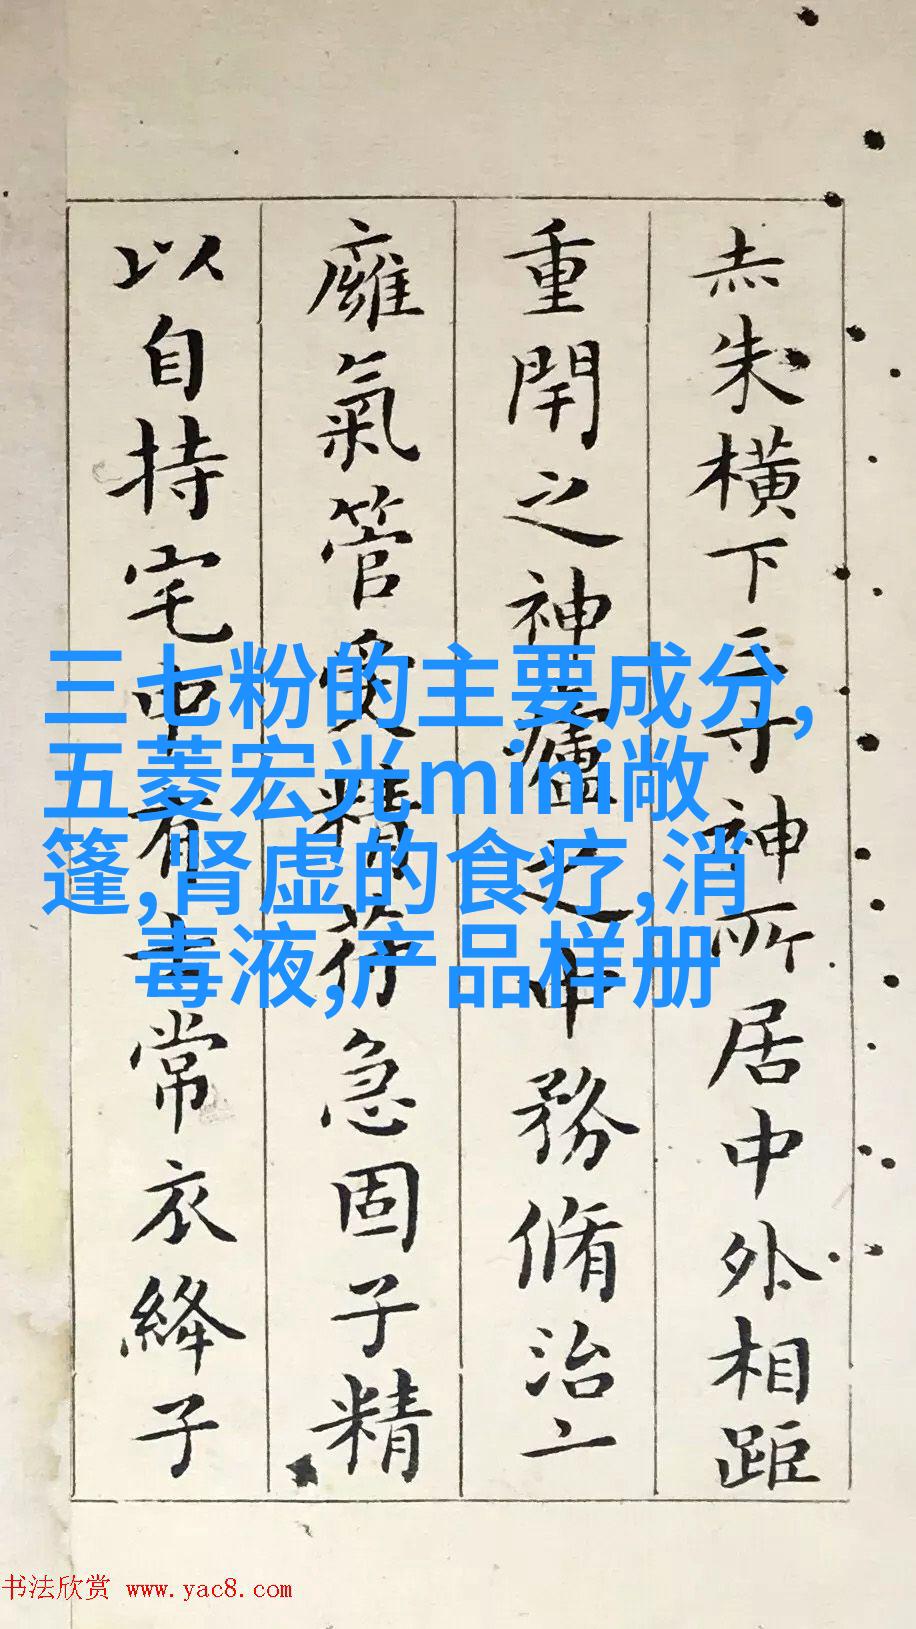 赤朱橫下至寸神所居中外相距
重閈之神廬之中務脩治二
廱氣管受精苻急固子精
以自持宅中有士常衣絳子
三七粉的主要成分,
五菱宏光mini敞
篷,肾虚的食疗,消
毒液,产品样册
书法欣赏 www.yac8.com